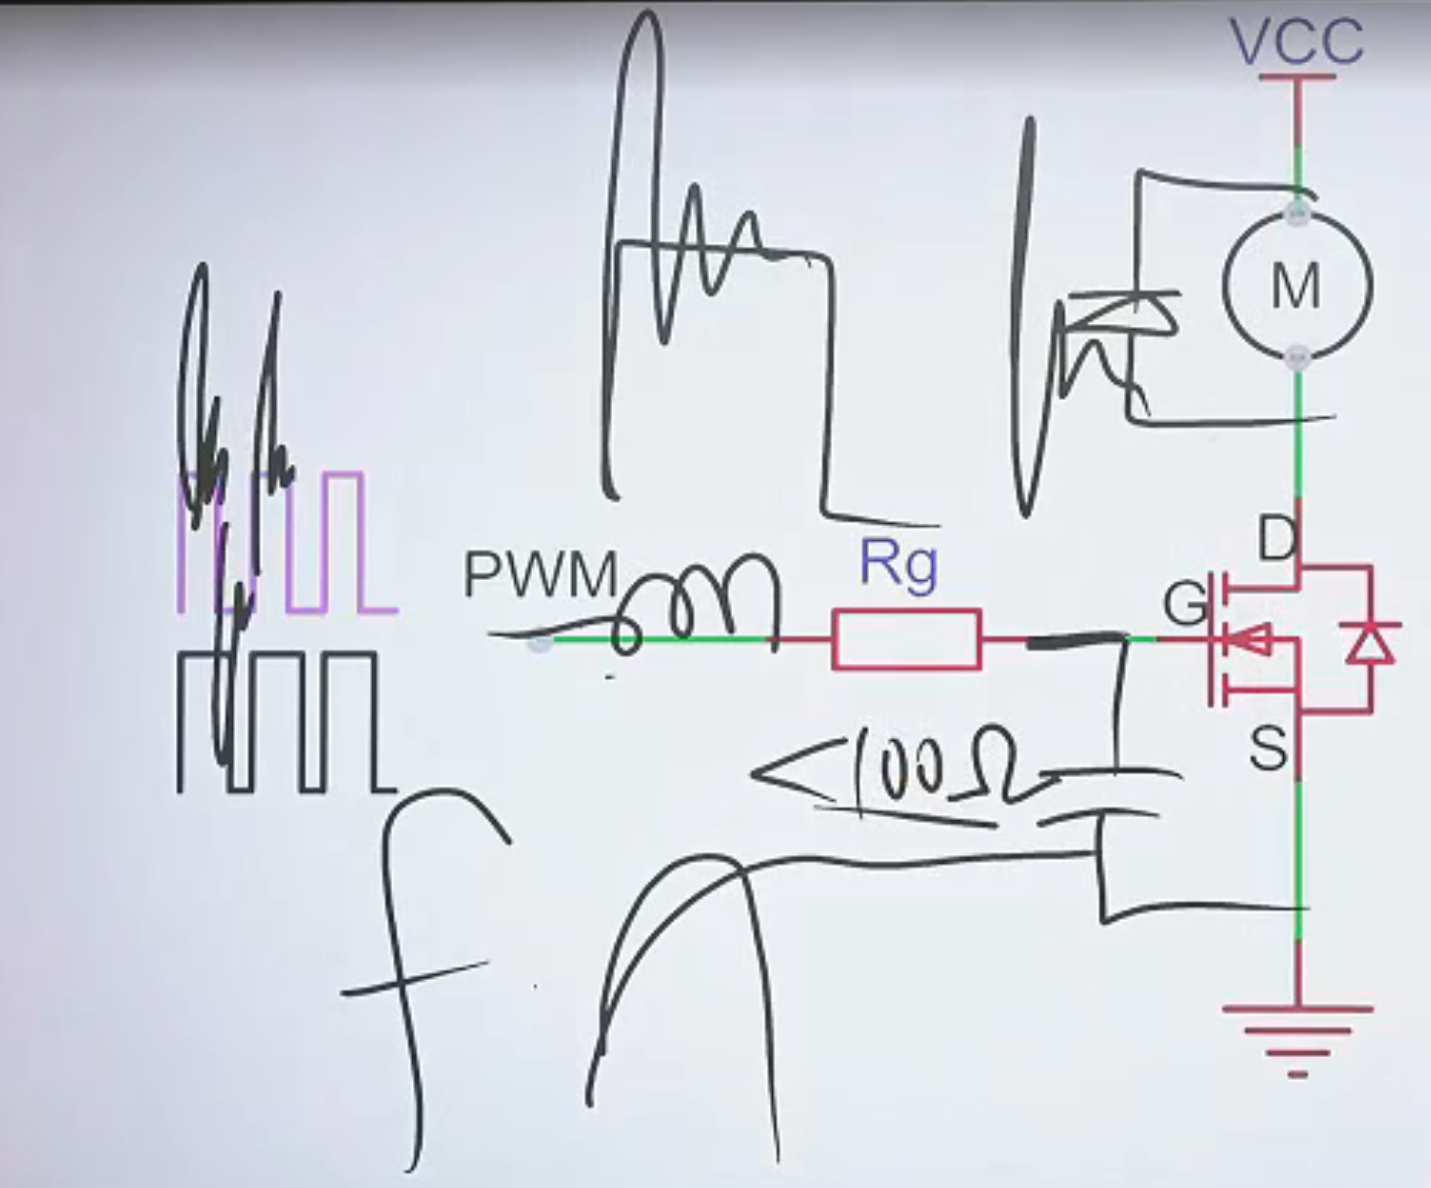 VCC
M
D
PWM
Rg
G
S
<100Ω
f